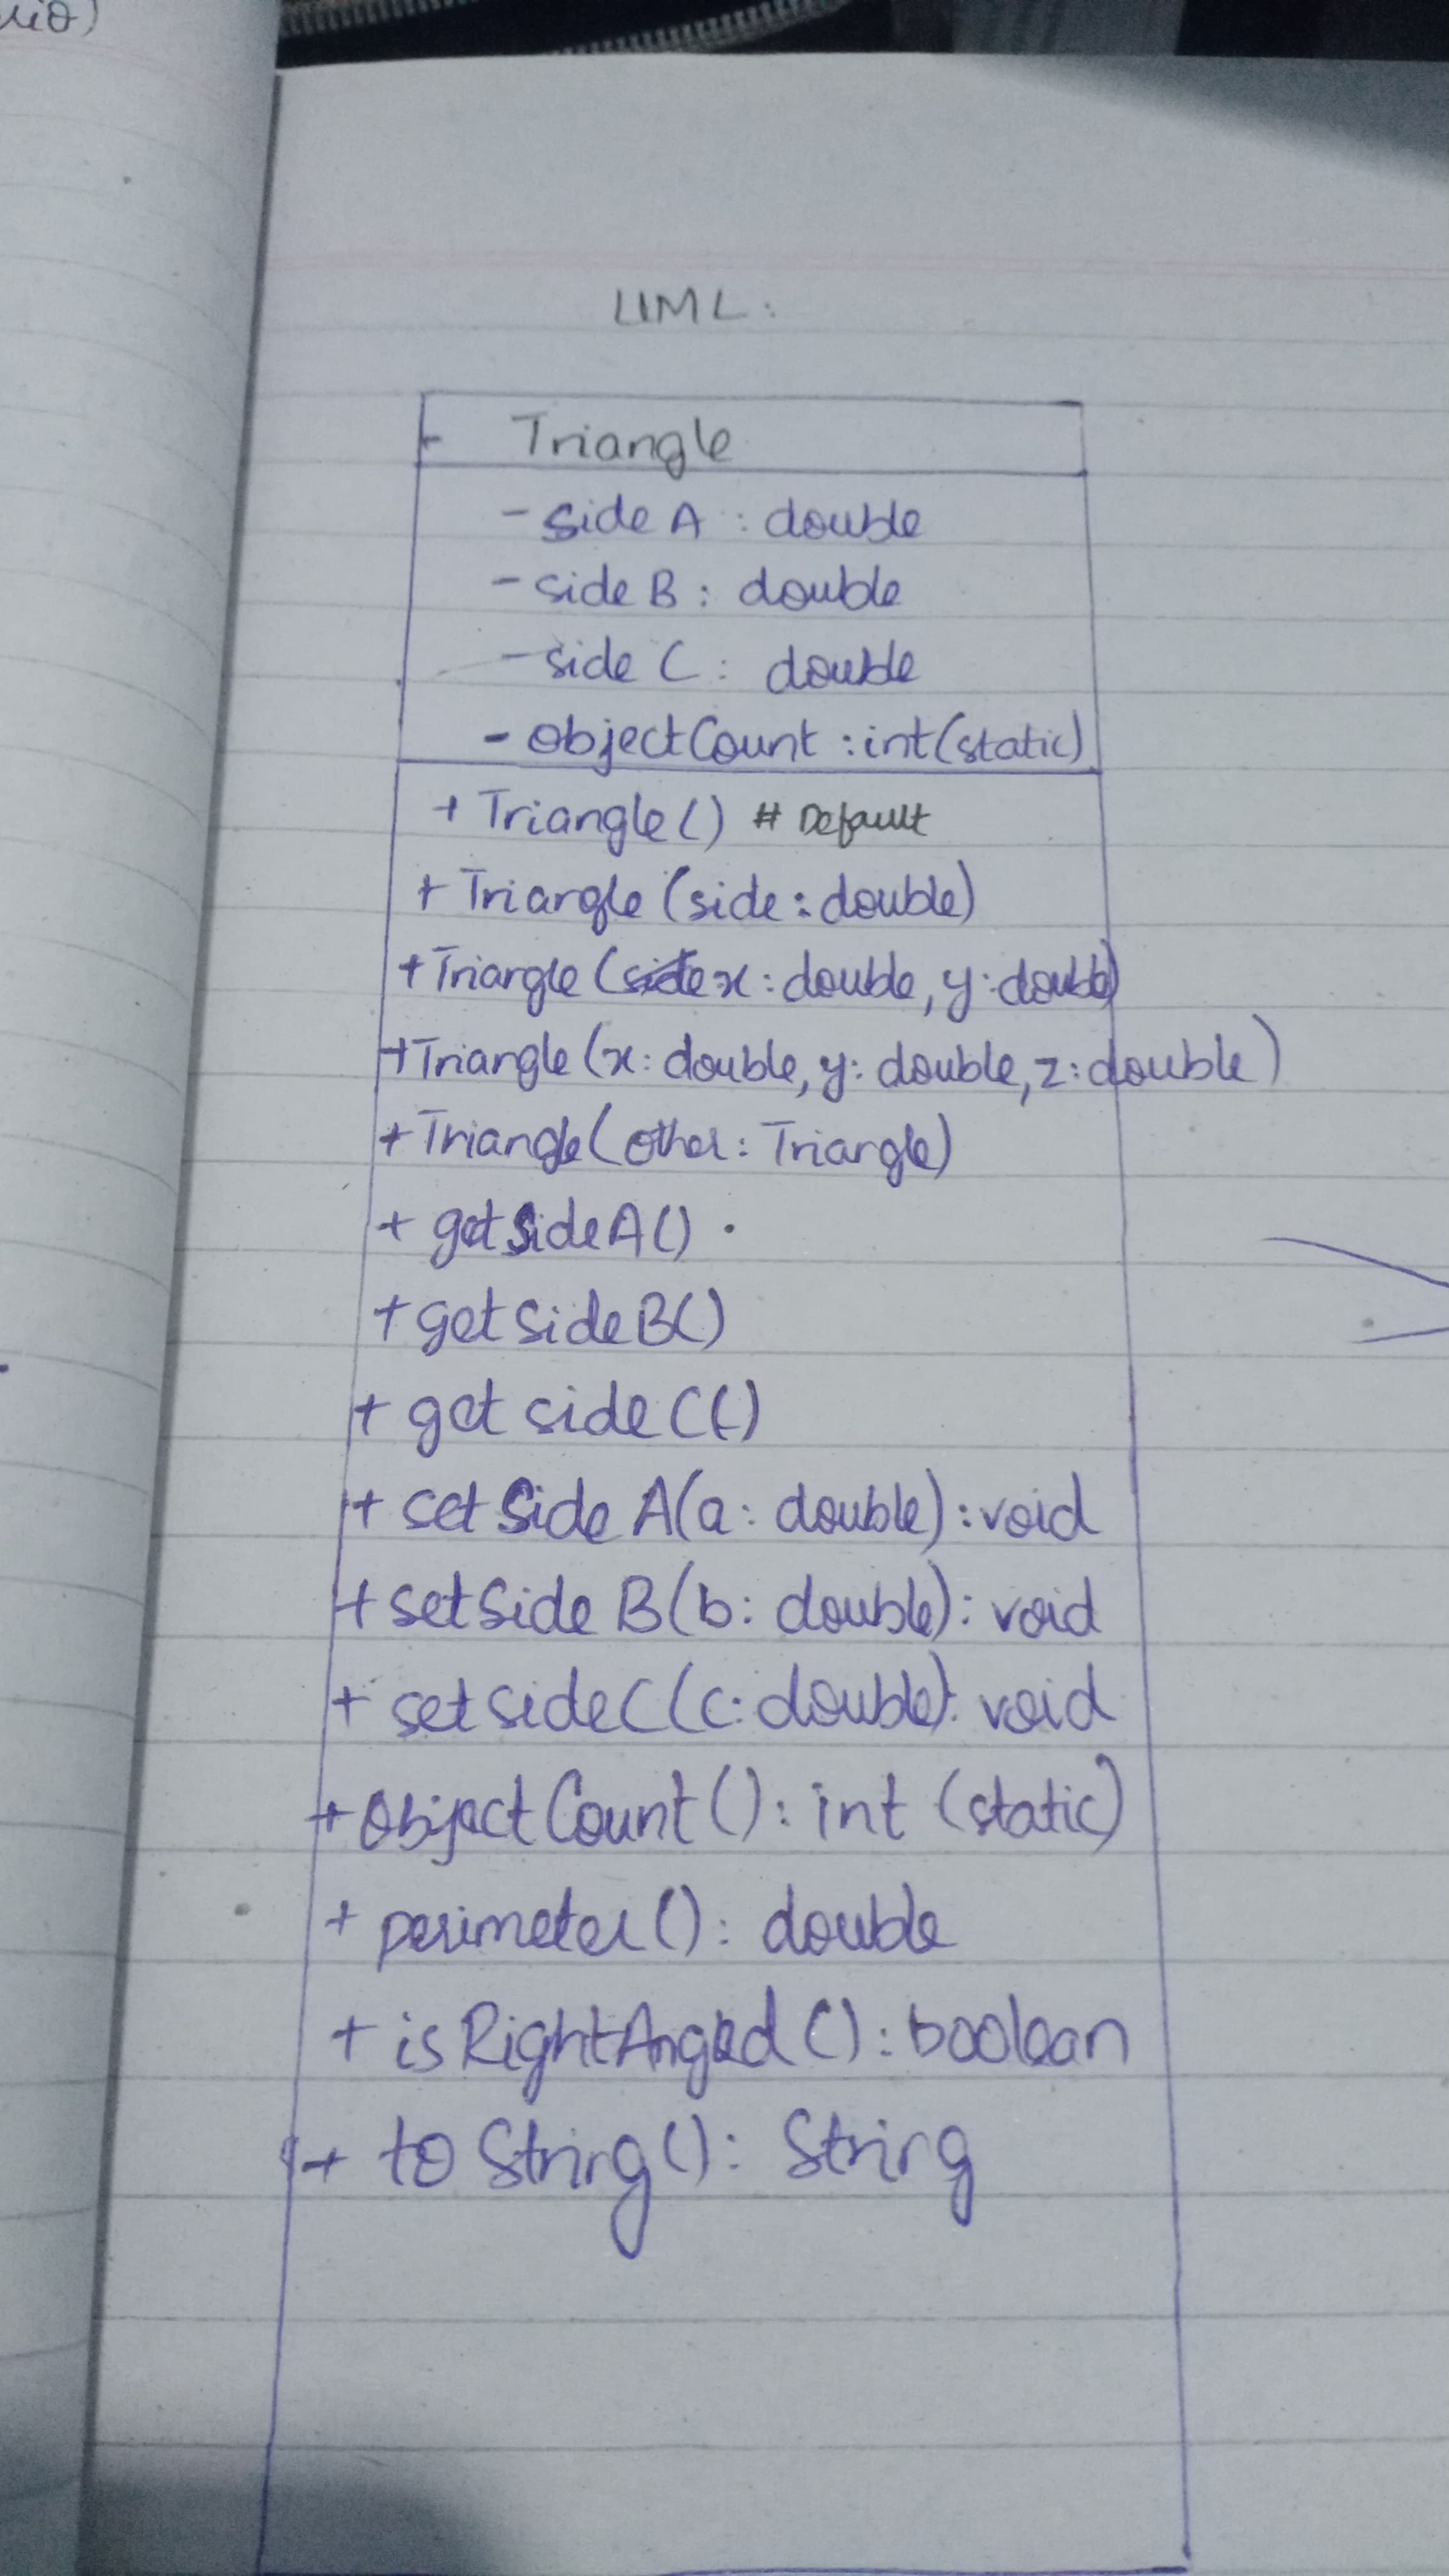 UML:
Triangle
- side A : double
- side B : double
- side C : double
- objectCount : int (static)
+ Triangle() # Default
+ Triangle (side : double)
+ Triangle (x : double, y : double)
+ Triangle (x : double, y : double, z : double)
+ Triangle (other : Triangle)
+ getSideA()
+ getsideB()
+ getsideC()
+ setSide A(a : double) : void
+ setSide B(b : double) : void
+ setsideC(c : double) : void
+ objectCount() : int (static)
+ perimeter() : double
+ isRightAngled() : boolean
+ toString() : String